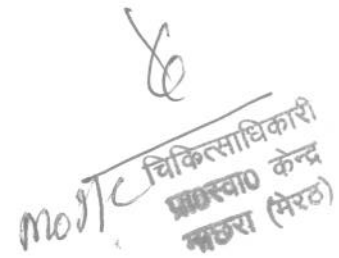 MOIC चिकित्साधिकारी
प्रा०स्वा० केन्द्र
माछरा (मेरठ)